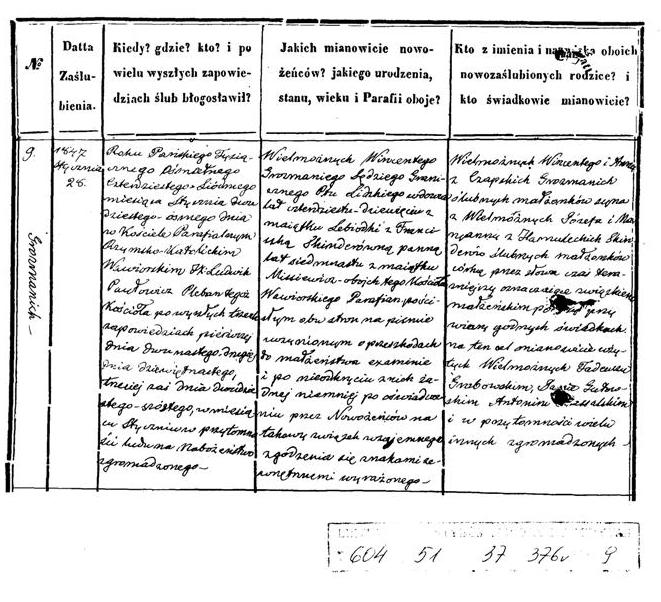 №
Datta
Zaślu-
bienia.
Kiedy? gdzie? kto? i po
wielu wyszłych zapowie-
dziach ślub błogosławił?
Jakich mianowicie nowo-
żeńców? jakiego urodzenia,
stanu, wieku i Parafii oboje?
Kto z imienia i nazwiska oboich
nowozaślubionych rodzice? i
kto świadkowie mianowicie?
9.
Grozmanich
1847
Stycznia
28.
Roku Pańskiego Tysią-
cznego Osmsetnego
Czterdziestego-Siódmego
miesiąca Stycznia dwu
dziestego-osmego dnia
w Kościele Parafialnym
Rzymsko-Katolickim
Wawiorskim Ludwik
Pawłowicz Pleban tegoż
Kościoła po wyszłych trzech
zapowiedziach pierwszej
dnia dwunastego, drugiej
dnia dziewiętnastego,
trzeciej zaś dnia dwudzie-
stego-szóstego, w miesią-
cu Styczniu w przytomno-
ści ludu na Nabożeństwo
zgromadzonego—
Wielmożnych Wincentego
Grozmaniego Sędziego Grani-
cznego Ptu Lidzkiego wdowca
lat czterdziestu-dziewięciu z
majątku Lebiodki z Franci-
szką Skinderówną panną
lat siedmnastu z majątku
Misiewicz-obojch tegoż Kościoła
Wawiorskiego Parafian po ści-
słym obu stron na piśmie
uczynionym o przeszkodach
do małżeństwa examinie
i po nieodkryciu z nich ża-
dnej niemniej po oświadcze-
niu przez Nowożeńców na
takowy związek wzajemnego
zgodzenia się znakami ze-
wnętrznemi wyrażonego—
Wielmożnych Wincentego i
z Czapskich Grozmanich
ślubnych małżonków syna
z Wielmożnych Józefa i Ma-
ryanny z Hamuleckich Skin-
derów Ślubnych małżonków
córką przez słowa czas tera-
zniejszy oznaczające związkiem
małżeńskim przy
wiary godnych świadkach
na ten cel mianowicie uży-
tych Wielmożnych Tadeuszu
Grabowskim,
skim Antonim
i w przytomności wielu
innych zgromadzonych—
604 51 37 376v 9